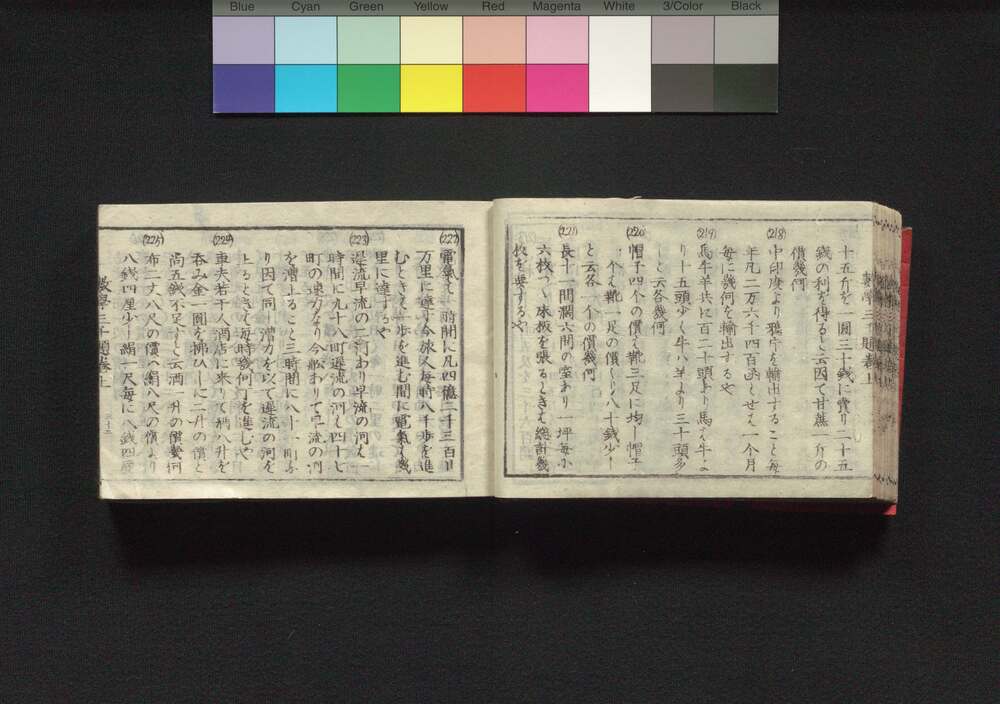 Blue Cyan Green Yellow Red Magenta White 3/Color Black
十五斤を一圓三十錢に賣り二十五
錢の利を得ると云因て甘蔗一斤の
價幾何
(218)
中印度より鴉片を輸出すること毎
年凡二万六千四百函とせば一个月
毎に幾何を輸出するや
(219)
馬牛羊共に百二十頭あり馬は牛よ
り十五頭少く牛は羊より三十頭多
しと云各幾何
(220)
帽子四个の價は靴三足に均し帽子
一个は靴一足の價より八十錢少し
と云各一个の價幾何
(221)
長十一間濶六間の室あり一坪毎に
六枚つゝ床板を張るときは總計幾
枚を要するや
(222)
電氣は一時間に凡四億二千三百
万里に達す今旅人毎時八千歩を進
むときは一歩を進む間に電氣は幾
里に達するや
(223)
遅流早流の二河あり早流の河は一
時間に九十八町遅流の河は四十七
町の速力なり今舩ありて早流の河
を漕上ること三時間に八十一町な
り因て同し漕力を以て遅流の河を
上るときは毎時幾何町を進むや
(224)
車夫若干人酒店に來りて酒八升を
呑み金一圓を拂ひしに二升の價と
尚五錢不足しと云酒一升の價幾何
(225)
布二丈八尺の價は絹八尺の價より
八錢四厘少し絹一尺毎に八錢四厘
數學三千題卷上